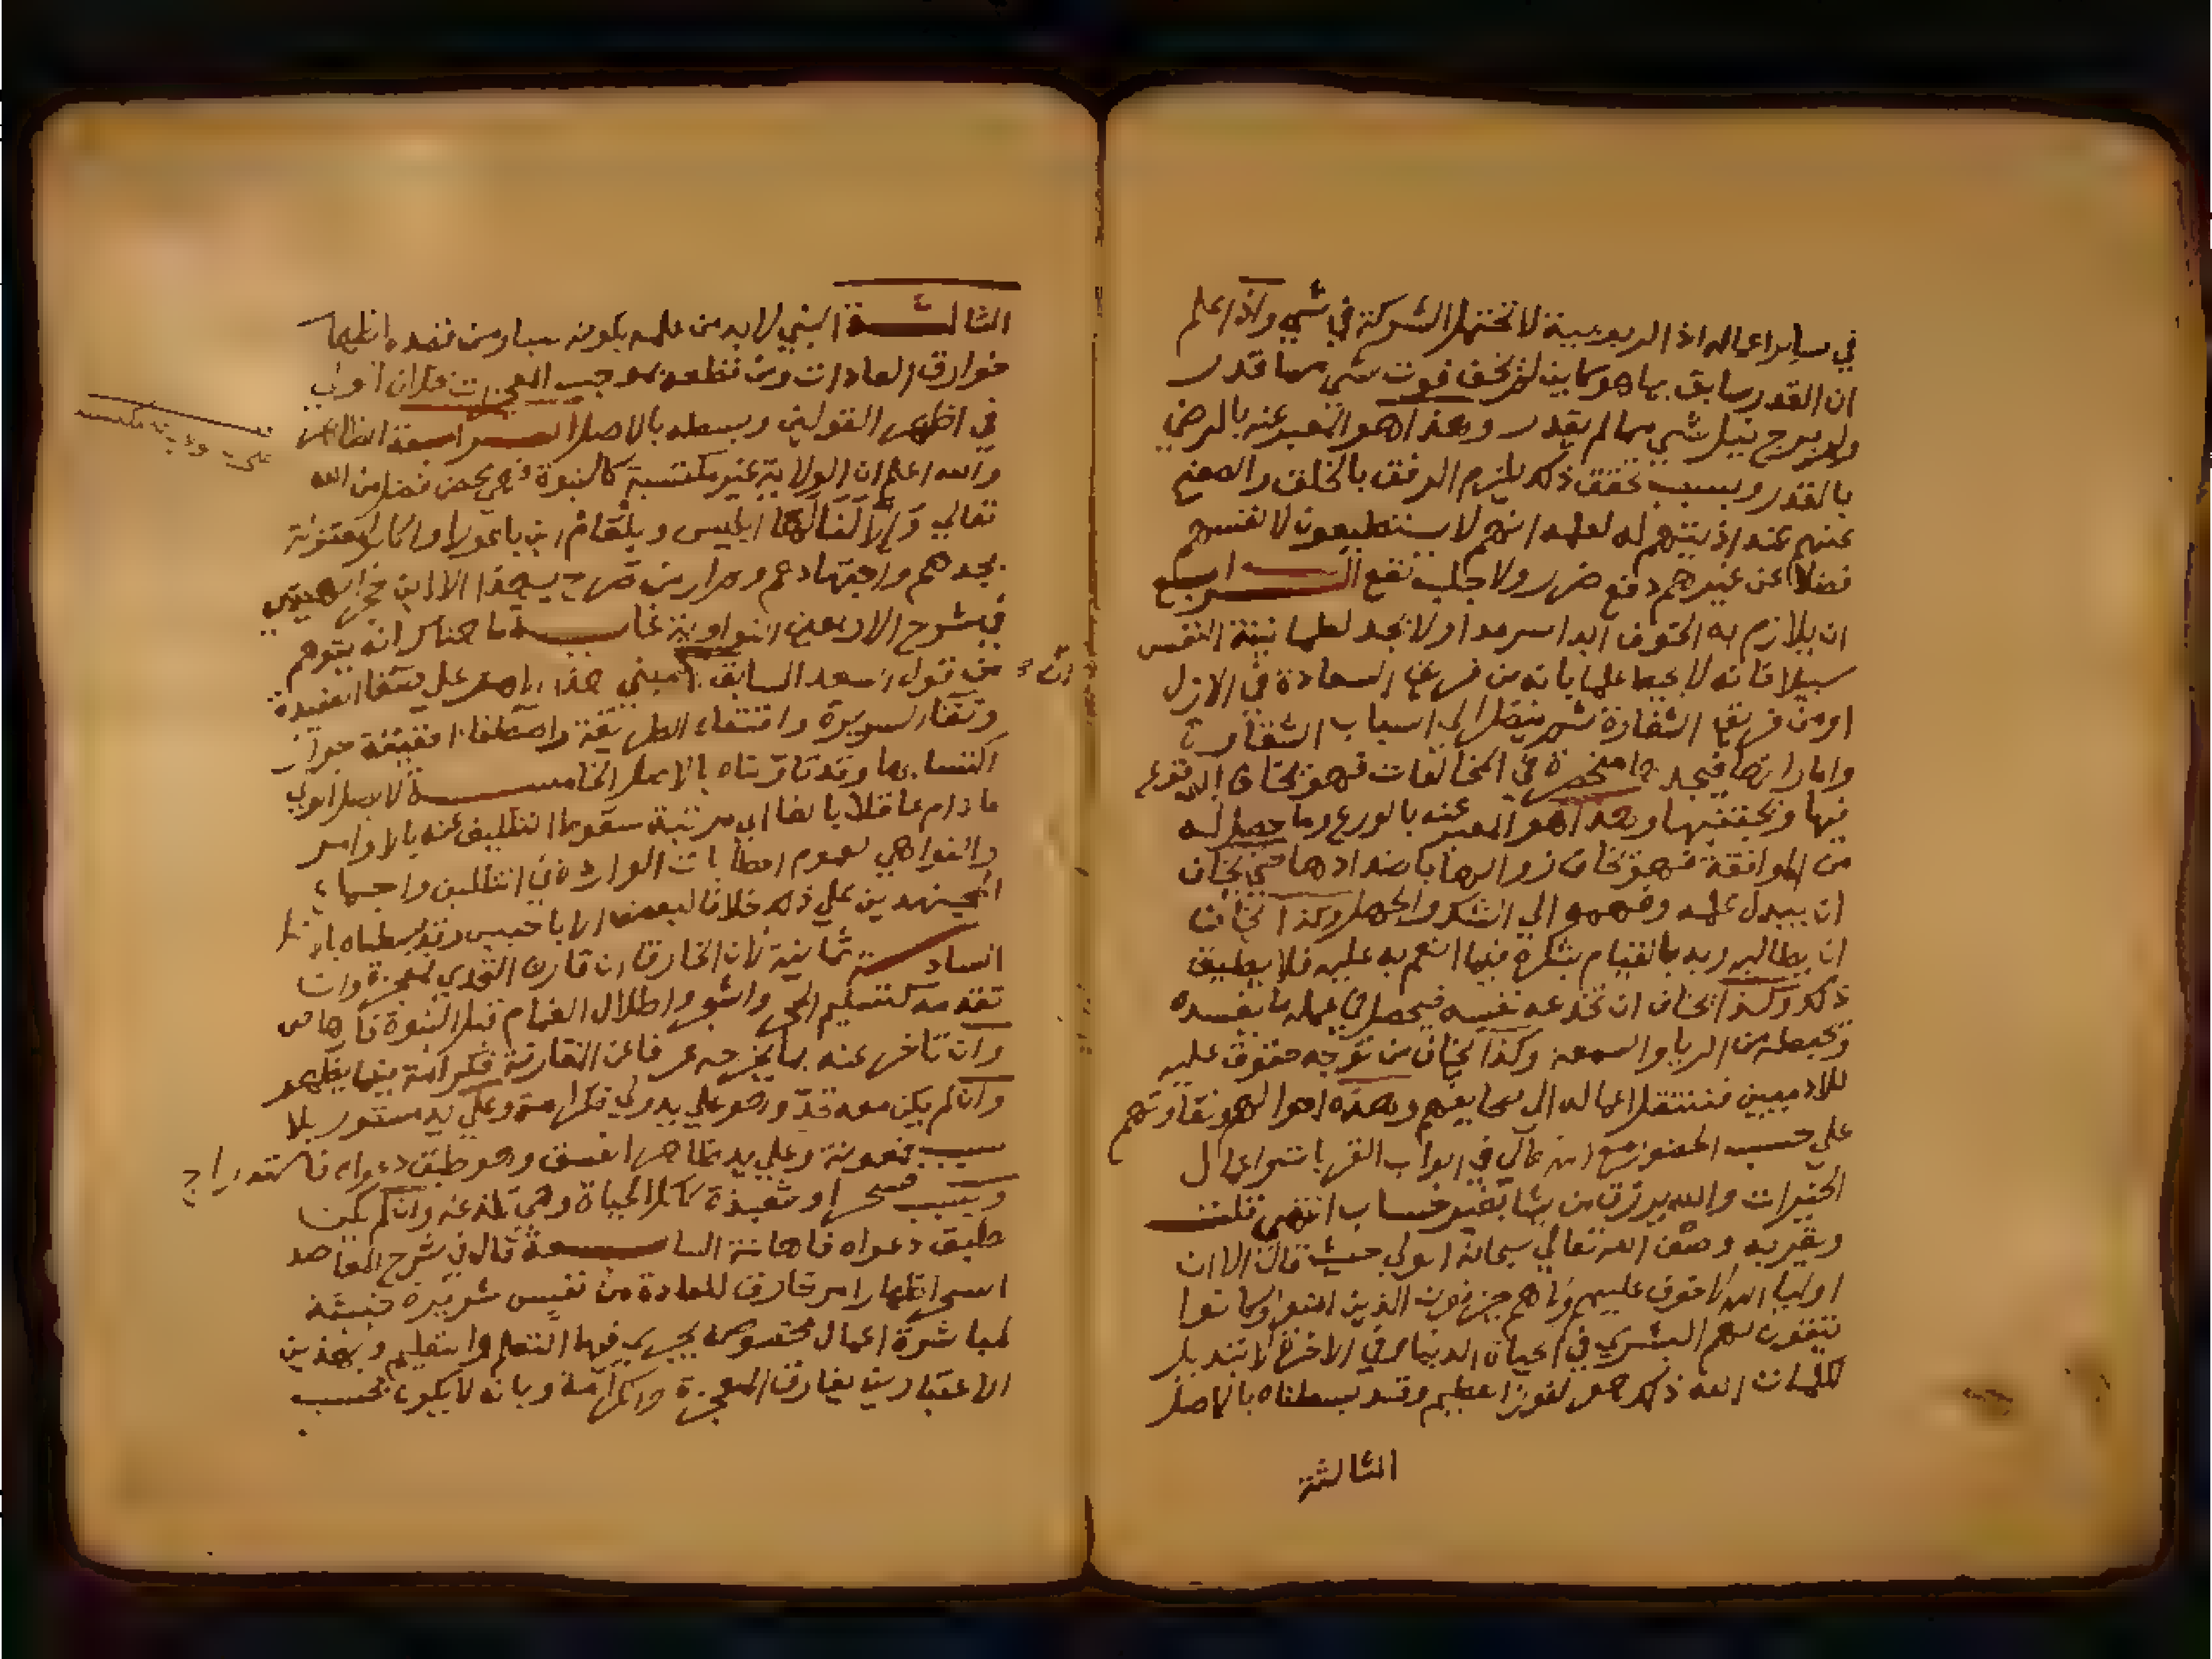 في ساير اعماله اذ الربوبية لا تحتمل الشركة في شي واذا علم
ان القدر سابق بما هو كاين لم يخف فوت شي مما قدر
ولم يرج نيل شي مما لم يقدر وهذا هو المعبر عنه بالرضي
بالقدر وبسبب تحقق ذلك يلزم الرفق بالخلق والصفح
عنهم عند اذيتهم له لعلمه انهم لا يستطيعون لانفسهم
فضلا عن غيرهم دفع ضرر ولا جلب نفع الرابع
ان يلازم به الخوف ابدا سرمدا ولا يجد لطمانينة النفس
سبيلا فانه لا يحيط علما بانه من فريق السعادة في الازل
او من فريق الشقاوة ثم ينظر الى اسباب الشقاوة
واماراتها فيجدها منحصرة في المخالفات فهو يخاف الوقوع
فيها ويجتنبها وهذا هو المعبر عنه بالورع وما حصل له
من الموافقة فهو يخاف زوالها باضدادها حتي يخاف
ان يبدل علمه وفهمه الي الشك والجهل وكذا يخاف
ان يطالبه ربه بالقيام بشكره فيما انعم به عليه فلا يطيق
ذلك وكذا يخاف ان تخدعه نفسه فيحصل في عمله ما يفسده
ويحبطه من الريا والسمعة وكذا يخاف من توجه حقوق عليه
للادميين فتنتقل اعماله الى صحايفهم وهذه احوالهم وتفاوتهم
علي حسب الحضور مع الله تعالى في ابواب القربات واعمال
الخيرات والله يرزق من يشا بغير حساب انتهي قلت
ويقربه وصف الله تعالي سبحانه الولي حيث قال الا ان
اوليا الله لا خوف عليهم ولا هم يحزنون الذين امنوا وكانوا
يتقون لهم البشري في الحياة الدنيا وفي الاخرة لا تبديل
لكلمات الله ذلك هو الفوز العظيم وقد بسطناه بالاصل
الثالثة
الثالثة النبي لا بد من علمه بكونه نبيا ومن قصده اظهار
خوارق العادات ومن قطعه بموجب المعجزات بخلاف الولي
في اظهر القولين وبسطه بالاصل الرابعة الظاهر
والله اعلم ان الولاية غير مكتسبة كالنبوة فهي محض فضل من الله
تعالي والا لنالها ابليس وبلعام ابن باعورا واكابر المعتزلة
بجدهم واجتهادهم ولم ار من صرح بهذا الا ابن حجر الهيتمي
في شرح الاربعين النواوية غايبة ما هناك انه يتوهم
من قول السعد السابق المبني هذا الامر علي صفا العقيدة
ونقا السريرة واقتفاء الطريقة واصطفا الحقيقة جواز
اكتسابها وقد تاولناه بالاصل الخامسة لا يصل الولي
ما دام عاقلا بالغا الى مرتبة سقوط التكليف عنه بالاوامر
والنواهي لعموم الخطابات الواردة في التكليف واجماع
المجتهدين علي ذلك خلافا لبعض الاباحيين وقد بسطناه بالاصل
السادسة ثمانية لان الخارق ان قارن التحدي فمعجزة وان
تقدمه كتسليم الحجر والشجر واظلال الغمام قبل النبوة فارهاص
وان تاخر عنه بما يخرجه عرفا عن المقارنة فكرامة فيما يظهر
وان لم يكن معه تحد وهو علي يد ولي فكرامة وعلي يد مستور بلا
سبب فمعونة وعلي يد ظاهر الفسق وهو طبق دعواه فاستدراج
وبسبب فسحر او شعبذة كاكل الحياة وهي تلدغه وان لم يكن
طبق دعواه فاهانة السابعة قال في شرح المقاصد
السحر اظهار امر خارق للعادة من نفس شريرة خبيثة
لمباشرة اعمال مخصوصة يجري فيها التعلم والتعليم وبهذين
الاعتبارين يفارق المعجزة والكرامة وبانه لا يكون بحسب